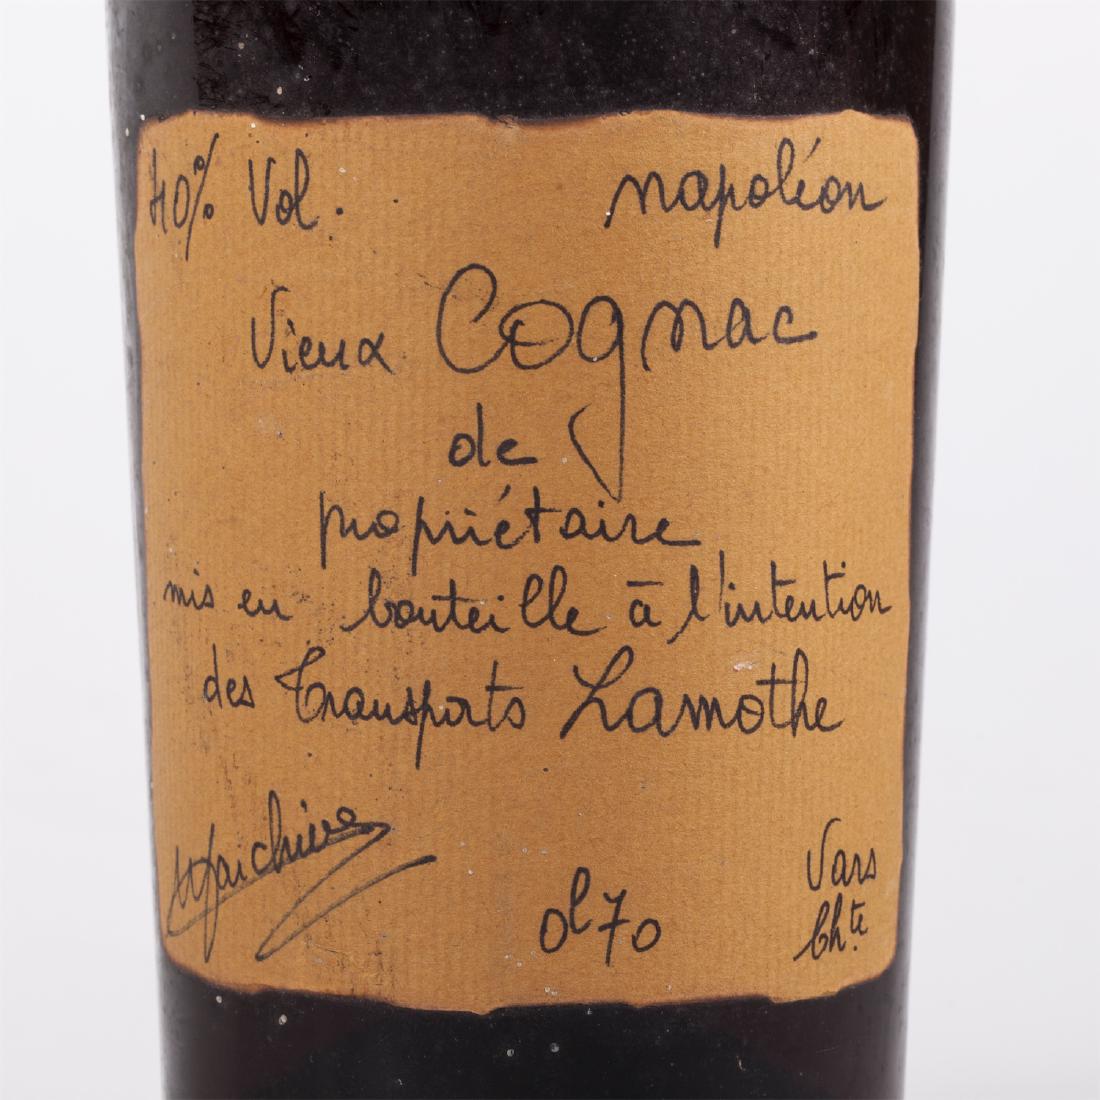 40% Vol. napoléon
Vieux Cognac
de
propriétaire
mis en bouteille à l'intention
des Transports Lamothe
Vars
0l70
Chte.